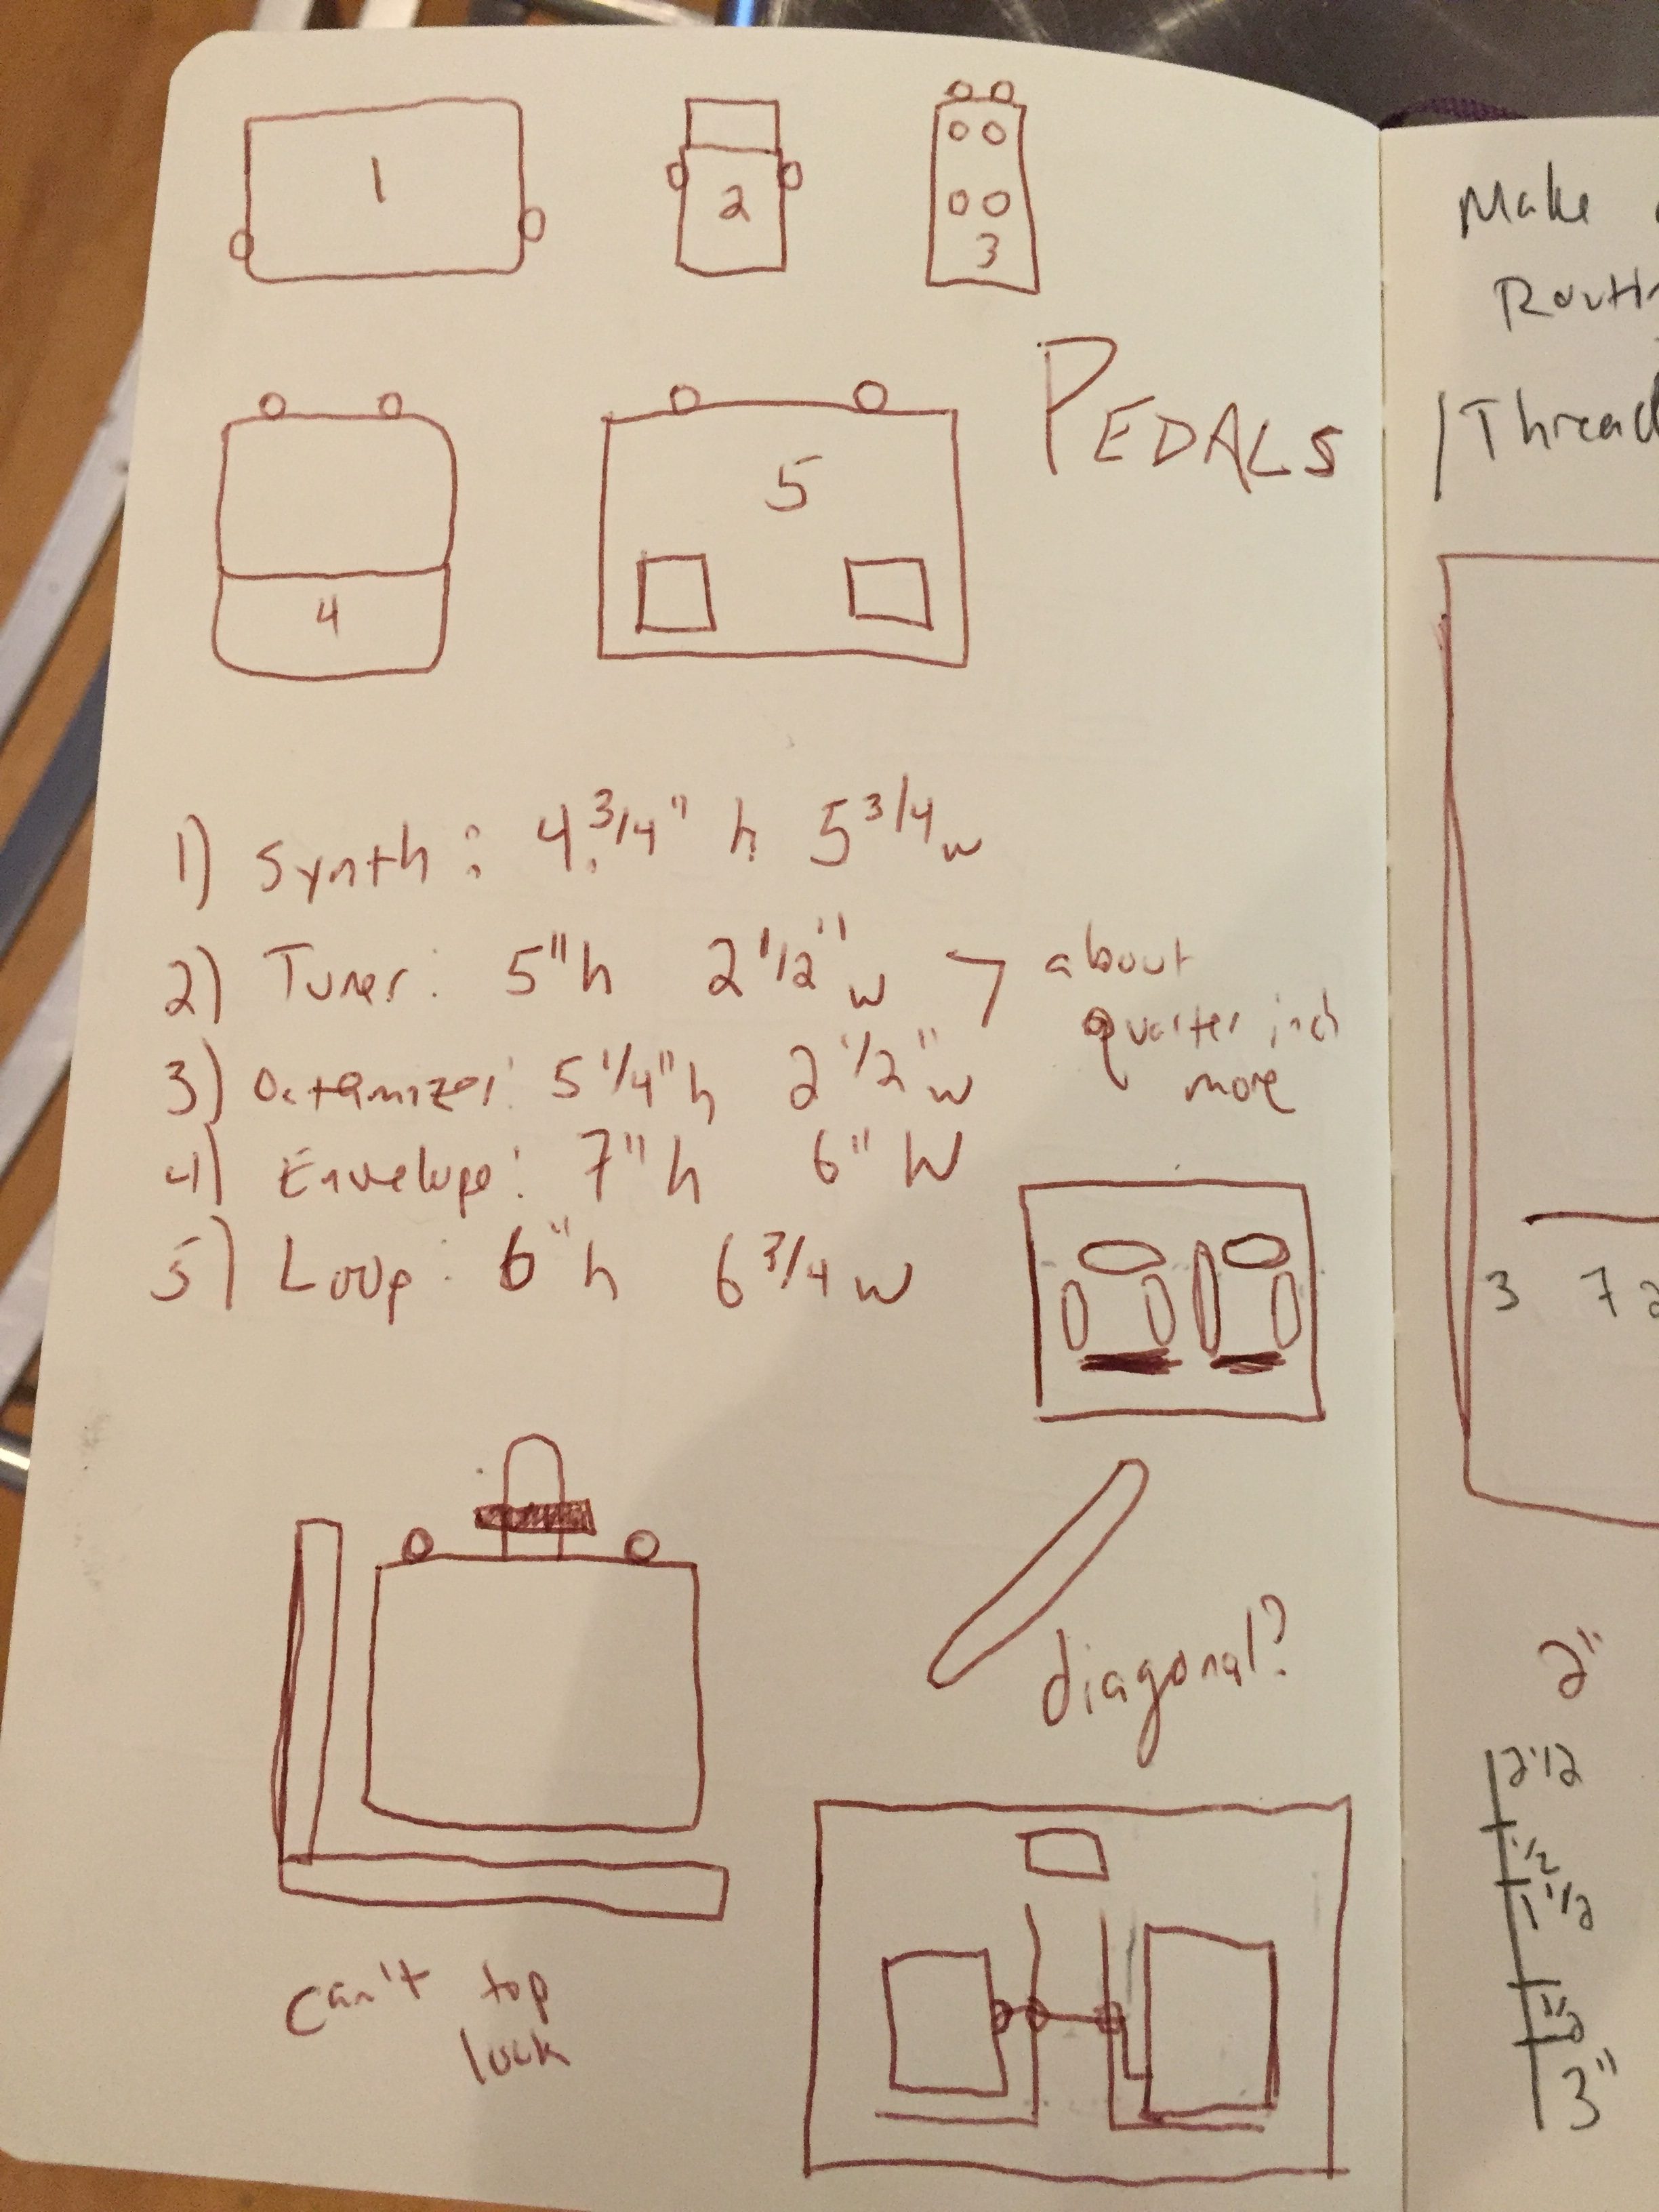 1
2
3
4
5
PEDALS
1) Synth: 4 3/4" h 5 3/4 w
2) Tuner: 5"h 2 1/2" w > about
quarter inch
more
3) Octamizer: 5 1/4" h 2 1/2" w
4) Envelope: 7" h 6" W
5) Loop: 6" h 6 3/4 w
diagonal?
can't top
lock
Make
Routi
/Thread
3 7 2
2"
2 1/2
1/2
1 1/2
3"